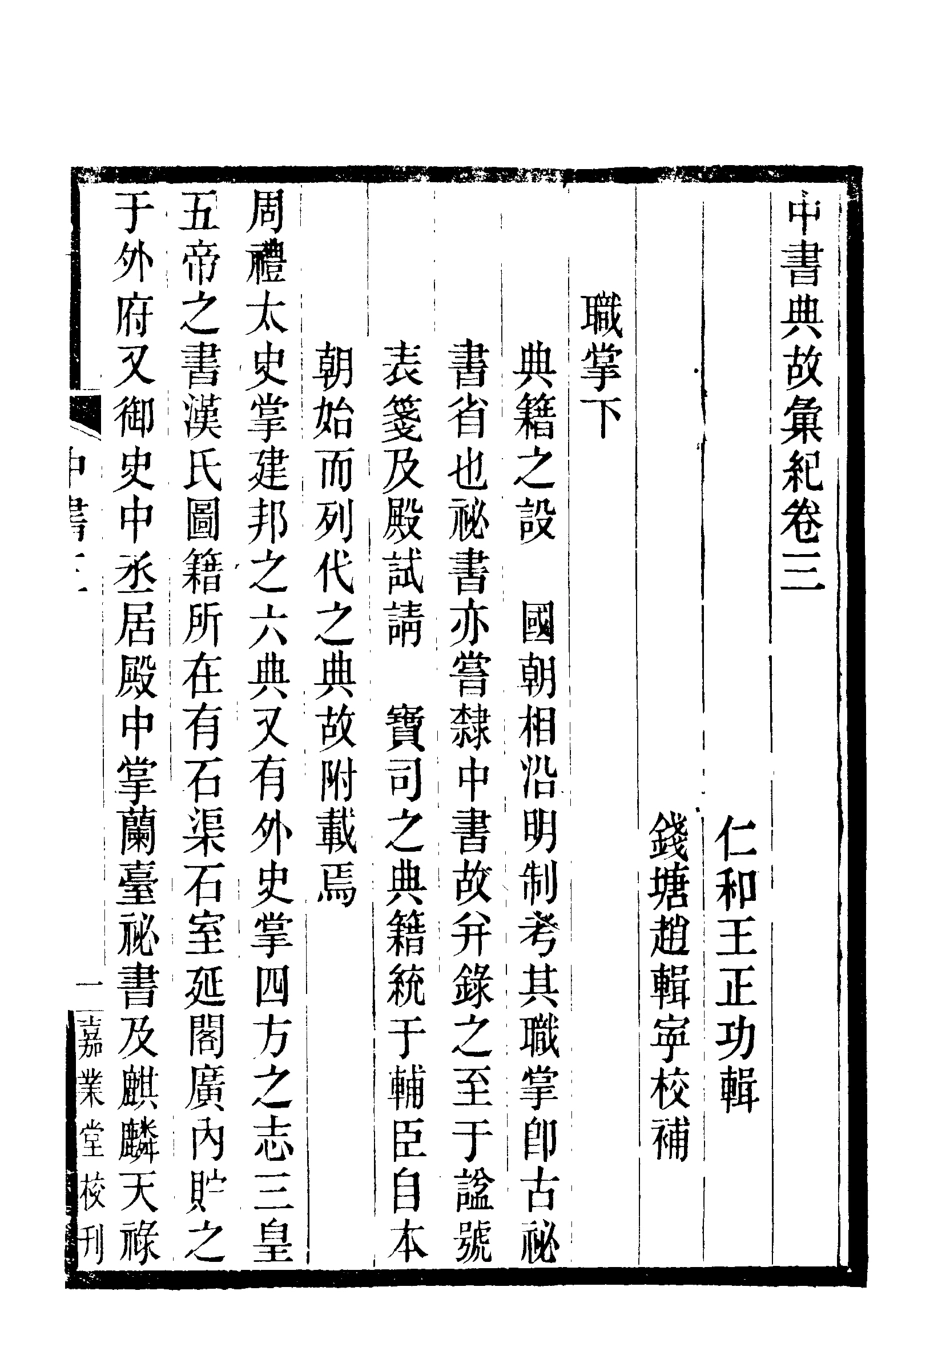 中書典故彙紀卷三
仁和王正功輯
錢塘趙輯寧校補
職掌下
典籍之設　國朝相沿明制考其職掌卽古祕
書省也祕書亦嘗隸中書故弁錄之至于諡號
表箋及殿試請　寶司之典籍統于輔臣自本
朝始而列代之典故附載焉
周禮太史掌建邦之六典又有外史掌四方之志三皇
五帝之書漢氏圖籍所在有石渠石室延閣廣內貯之
于外府又御史中丞居殿中掌蘭臺祕書及麒麟天祿
中書三
一
嘉業堂校刊